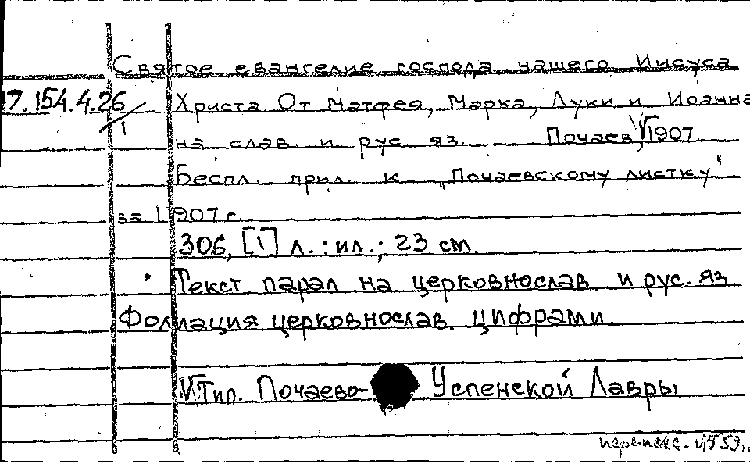 Святое евангелие господа нашего Иисуса
17.154.4.26
1
Христа От Матфея, Марка, Луки и Иоанна
на слав и рус яз. Почаев, 1907
Беспл. прил. к „Почаевскому листку"
за 1907 г.
306, [1] л. : ил. ; 23 см
Текст парал на церковнослав и рус. яз
Фолиация церковнослав. цифрами
Тип. Почаево- Успенской Лавры